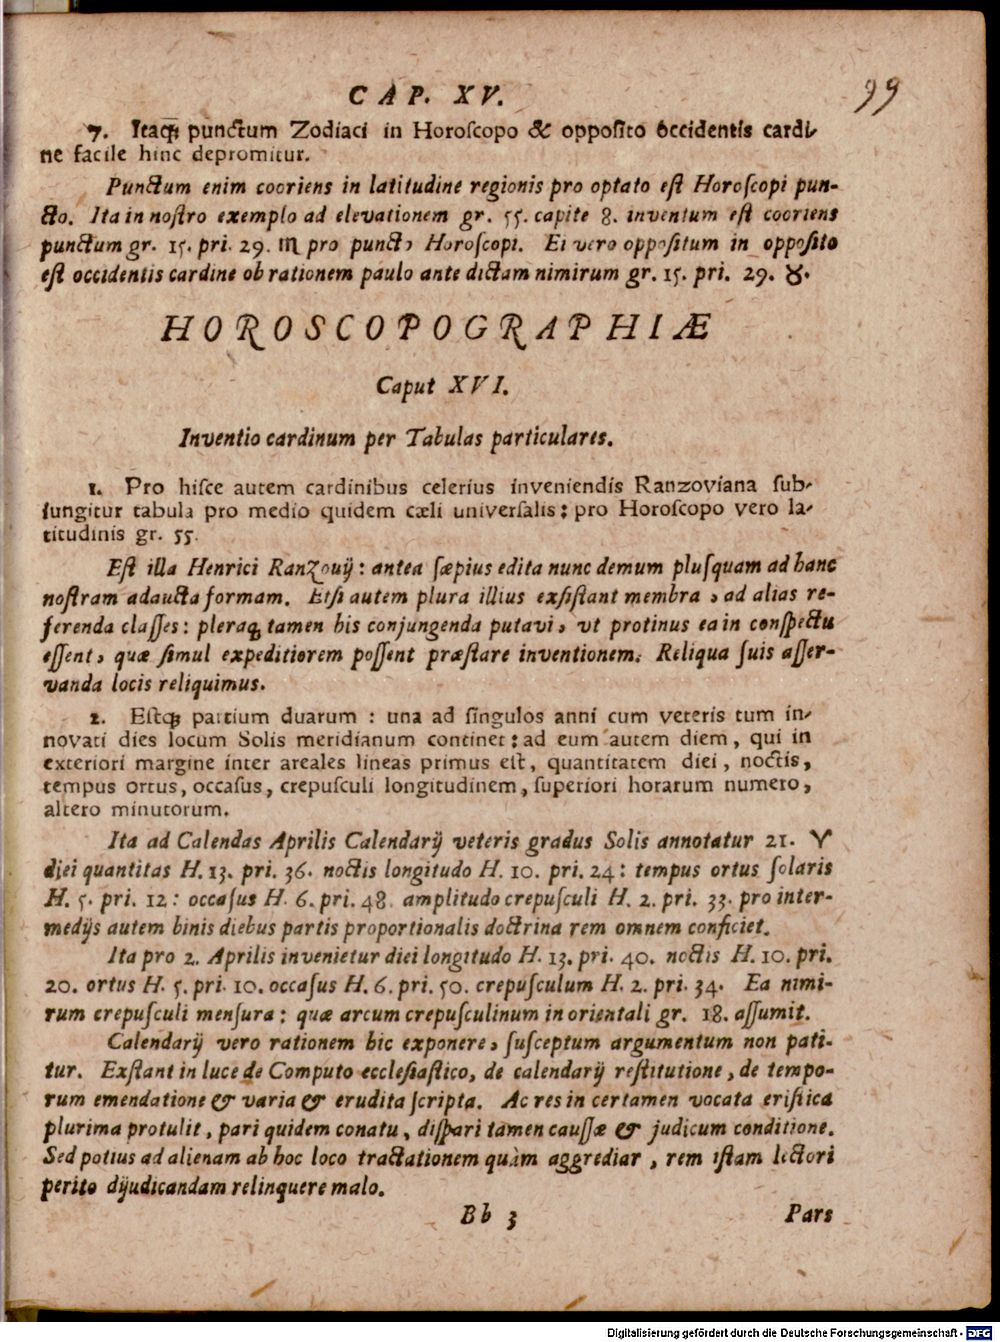 CAP. XV.
99
7. Itaq; punctum Zodiaci in Horoſcopo & oppoſito occidentis cardi-
ne facile hinc depromitur.
Punctum enim cooriens in latitudine regionis pro optato eſt Horoſcopi pun-
cto. Ita in noſtro exemplo ad elevationem gr. 55. capite 8. inventum eſt cooriens
punctum gr. 15. pri. 29. ♏ pro puncto Horoſcopi. Ei vero oppoſitum in oppoſito
eſt occidentis cardine ob rationem paulo ante dictam nimirum gr. 15. pri. 29. ♉.
HOROSCOPOGRAPHIÆ
Caput XVI.
Inventio cardinum per Tabulas particulares.
1. Pro hiſce autem cardinibus celerius inveniendis Ranzoviana ſub-
iungitur tabula pro medio quidem cæli univerſalis: pro Horoſcopo vero la-
titudinis gr. 55.
Eſt illa Henrici Ranzouij: antea ſæpius edita nunc demum pluſquam ad hanc
noſtram adaucta formam. Etſi autem plura illius exſiſtant membra, ad alias re-
ferenda claſſes: pleraq; tamen his conjungenda putavi, vt protinus ea in conſpectu
eſſent, quæ ſimul expeditiorem poſſent præſtare inventionem. Reliqua ſuis aſſer-
vanda locis reliquimus.
2. Eſtq; partium duarum : una ad ſingulos anni cum veteris tum in-
novati dies locum Solis meridianum continet: ad eum autem diem, qui in
exteriori margine inter areales lineas primus eſt, quantitatem diei, noctis,
tempus ortus, occaſus, crepuſculi longitudinem, ſuperiori horarum numero,
altero minutorum.
Ita ad Calendas Aprilis Calendarij veteris gradus Solis annotatur 21. ♈
diei quantitas H. 13. pri. 36. noctis longitudo H. 10. pri. 24: tempus ortus ſolaris
H. 5. pri. 12: occaſus H. 6. pri. 48. amplitudo crepuſculi H. 2. pri. 33. pro inter-
medijs autem binis diebus partis proportionalis doctrina rem omnem conficiet.
Ita pro 2. Aprilis invenietur diei longitudo H. 13. pri. 40. noctis H. 10. pri.
20. ortus H. 5. pri. 10. occaſus H. 6. pri. 50. crepuſculum H. 2. pri. 34. Ea nimi-
rum crepuſculi menſura: quæ arcum crepuſculinum in orientali gr. 18. aſſumit.
Calendarij vero rationem hic exponere, ſuſceptum argumentum non pati-
tur. Exſtant in luce de Computo eccleſiaſtico, de calendarij reſtitutione, de tempo-
rum emendatione & varia & erudita ſcripta. Ac res in certamen vocata eriſtica
plurima protulit, pari quidem conatu, diſpari tamen cauſſæ & judicum conditione.
Sed potius ad alienam ab hoc loco tractationem quàm aggrediar, rem iſtam lectori
perito dijudicandam relinquere malo.
Bb 3
Pars
Digitalisierung gefördert durch die Deutsche Forschungsgemeinschaft - DFG